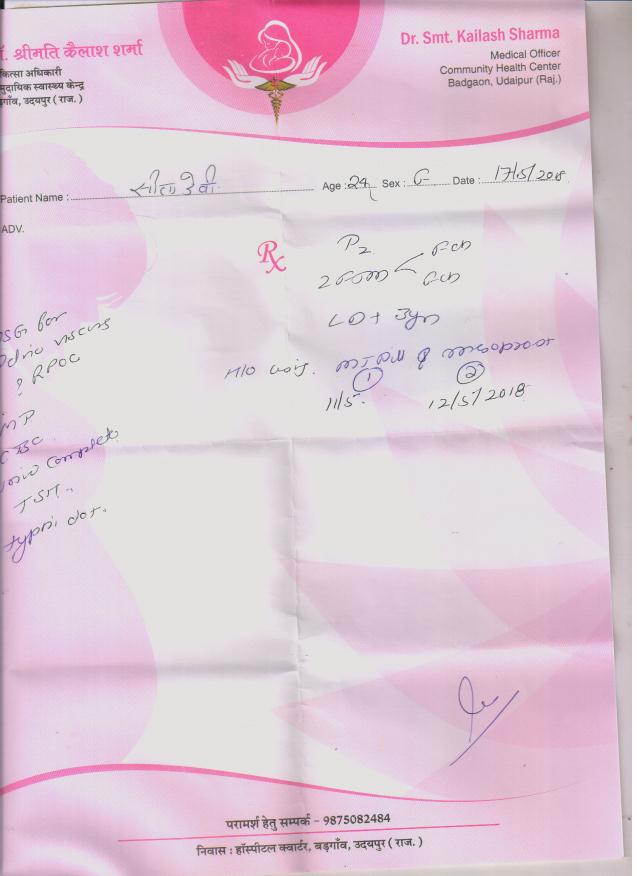 ॉ. श्रीमति कैलाश शर्मा
कित्सा अधिकारी
मुदायिक स्वास्थ्य केन्द्र
गाँव, उदयपुर ( राज. )
Dr. Smt. Kailash Sharma
Medical Officer
Community Health Center
Badgaon, Udaipur (Raj.)
Patient Name : सीता देवी Age : 24 Sex : F Date : 17/5/2018
ADV.
Rx
P2
LD + 3yr
H/O MTPill
① ②
11/5. 12/5/2018
USG for
Pelvic viscus
? RPOC
CBC
Urine Complete
TSH..
typhi dot.
परामर्श हेतु सम्पर्क - 9875082484
निवास : हॉस्पीटल क्वार्टर, बड़गाँव, उदयपुर ( राज. )